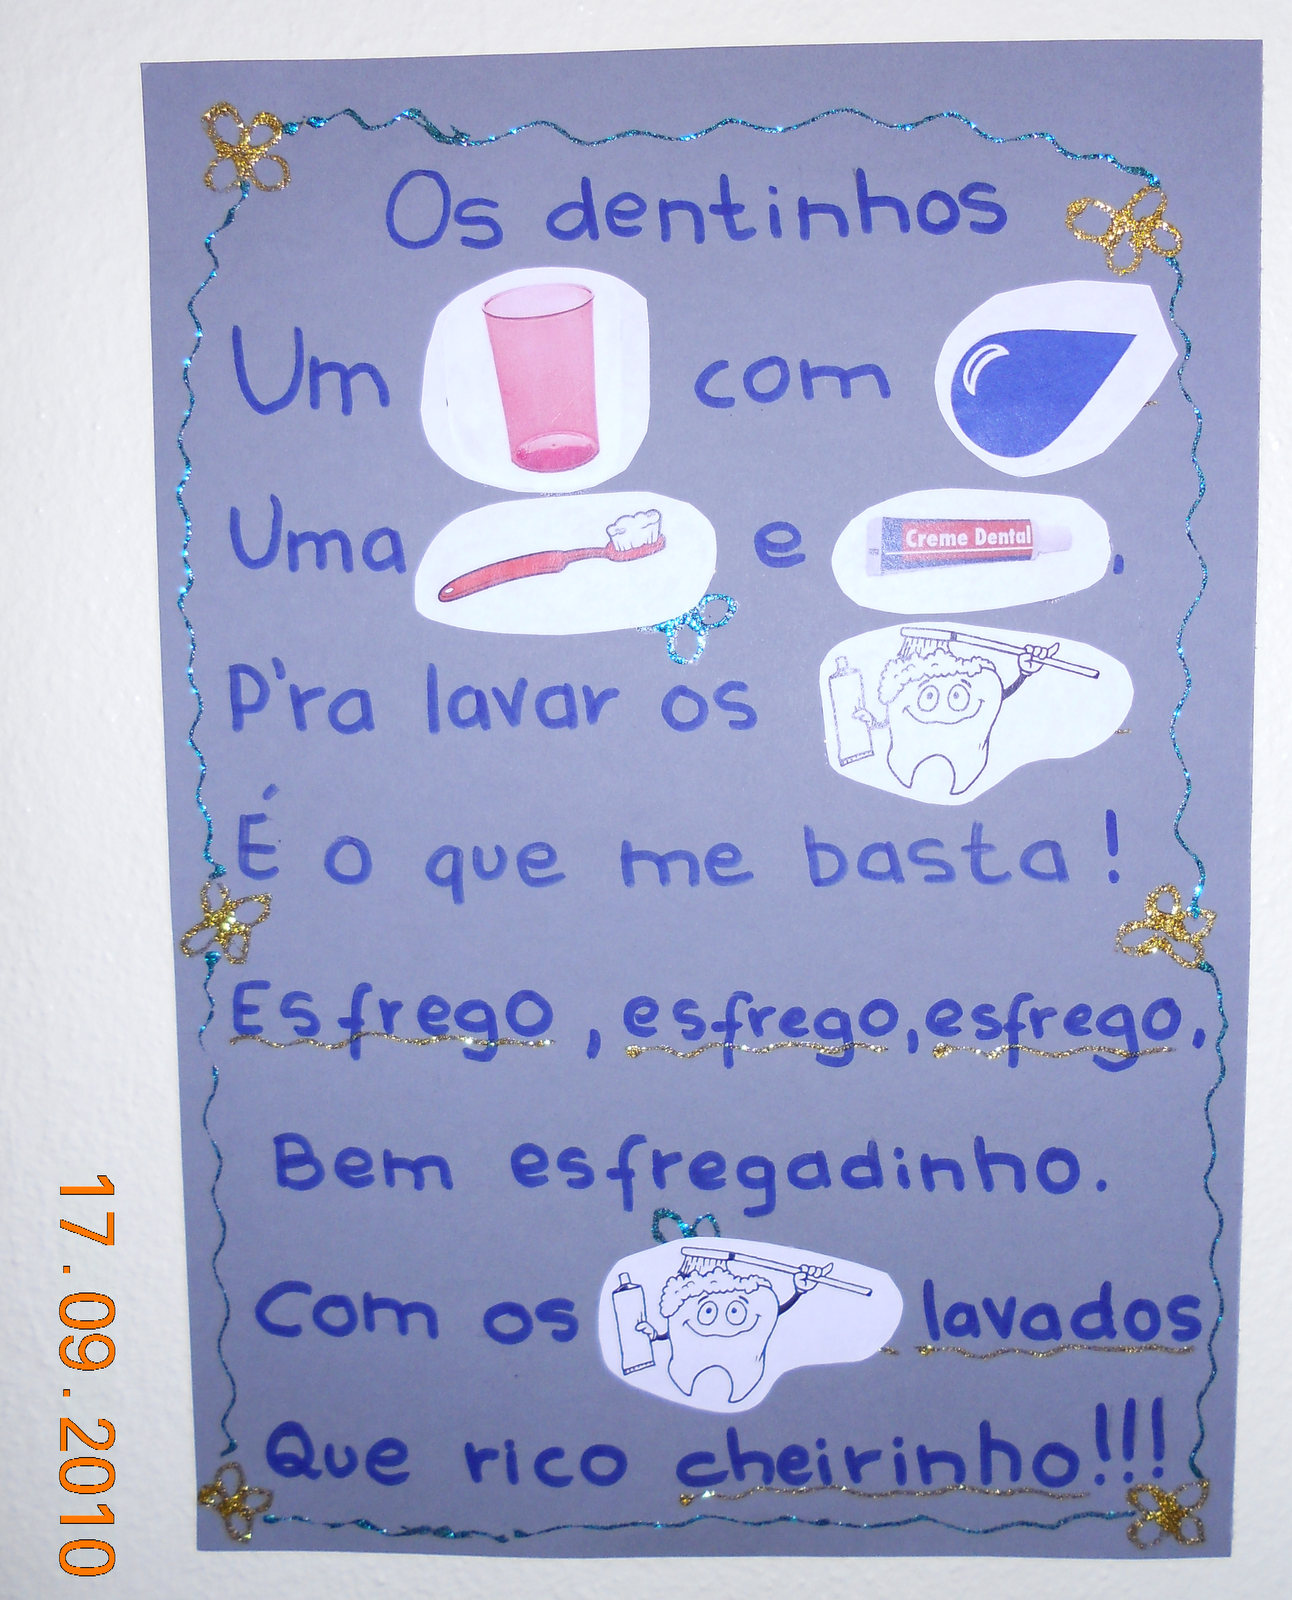 Os dentinhos
Um com
Uma e Creme Dental,
P'ra lavar os
É o que me basta!
Esfrego, esfrego, esfrego,
Bem esfregadinho.
Com os lavados
Que rico cheirinho!!!
17.09.2010